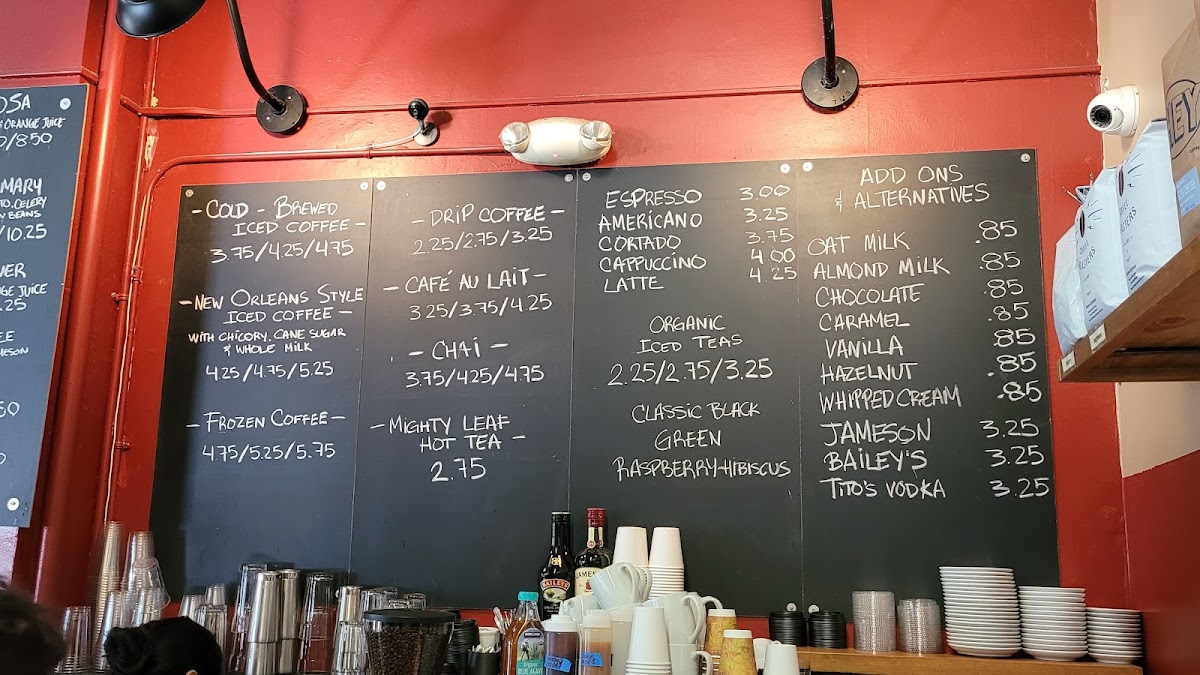 OSA
ORANGE JUICE
/8.50
MARY
TO. CELERY
BEANS
/10.25
JUICE
.25
- COLD - BREWED
ICED COFFEE -
3.75/4.25/4.75
- NEW ORLEANS STYLE
ICED COFFEE -
WITH CHICORY, CANE SUGAR
& WHOLE MILK
4.25/4.75/5.25
- FROZEN COFFEE -
4.75/5.25/5.75
- DRIP COFFEE -
2.25/2.75/3.25
- CAFÉ AU LAIT -
3.25/3.75/4.25
- CHAI -
3.75/4.25/4.75
- MIGHTY LEAF
HOT TEA -
2.75
ESPRESSO 3.00
AMERICANO 3.25
CORTADO 3.75
CAPPUCCINO 4.00
LATTE 4.25
ORGANIC
ICED TEAS
2.25/2.75/3.25
CLASSIC BLACK
GREEN
RASPBERRY-HIBISCUS
ADD ONS
& ALTERNATIVES
OAT MILK .85
ALMOND MILK .85
CHOCOLATE .85
CARAMEL .85
VANILLA .85
HAZELNUT .85
WHIPPED CREAM .85
JAMESON 3.25
BAILEY'S 3.25
TITO'S VODKA 3.25
BAILEYS
KIRKLAND
Organic
BLUE AGAVE